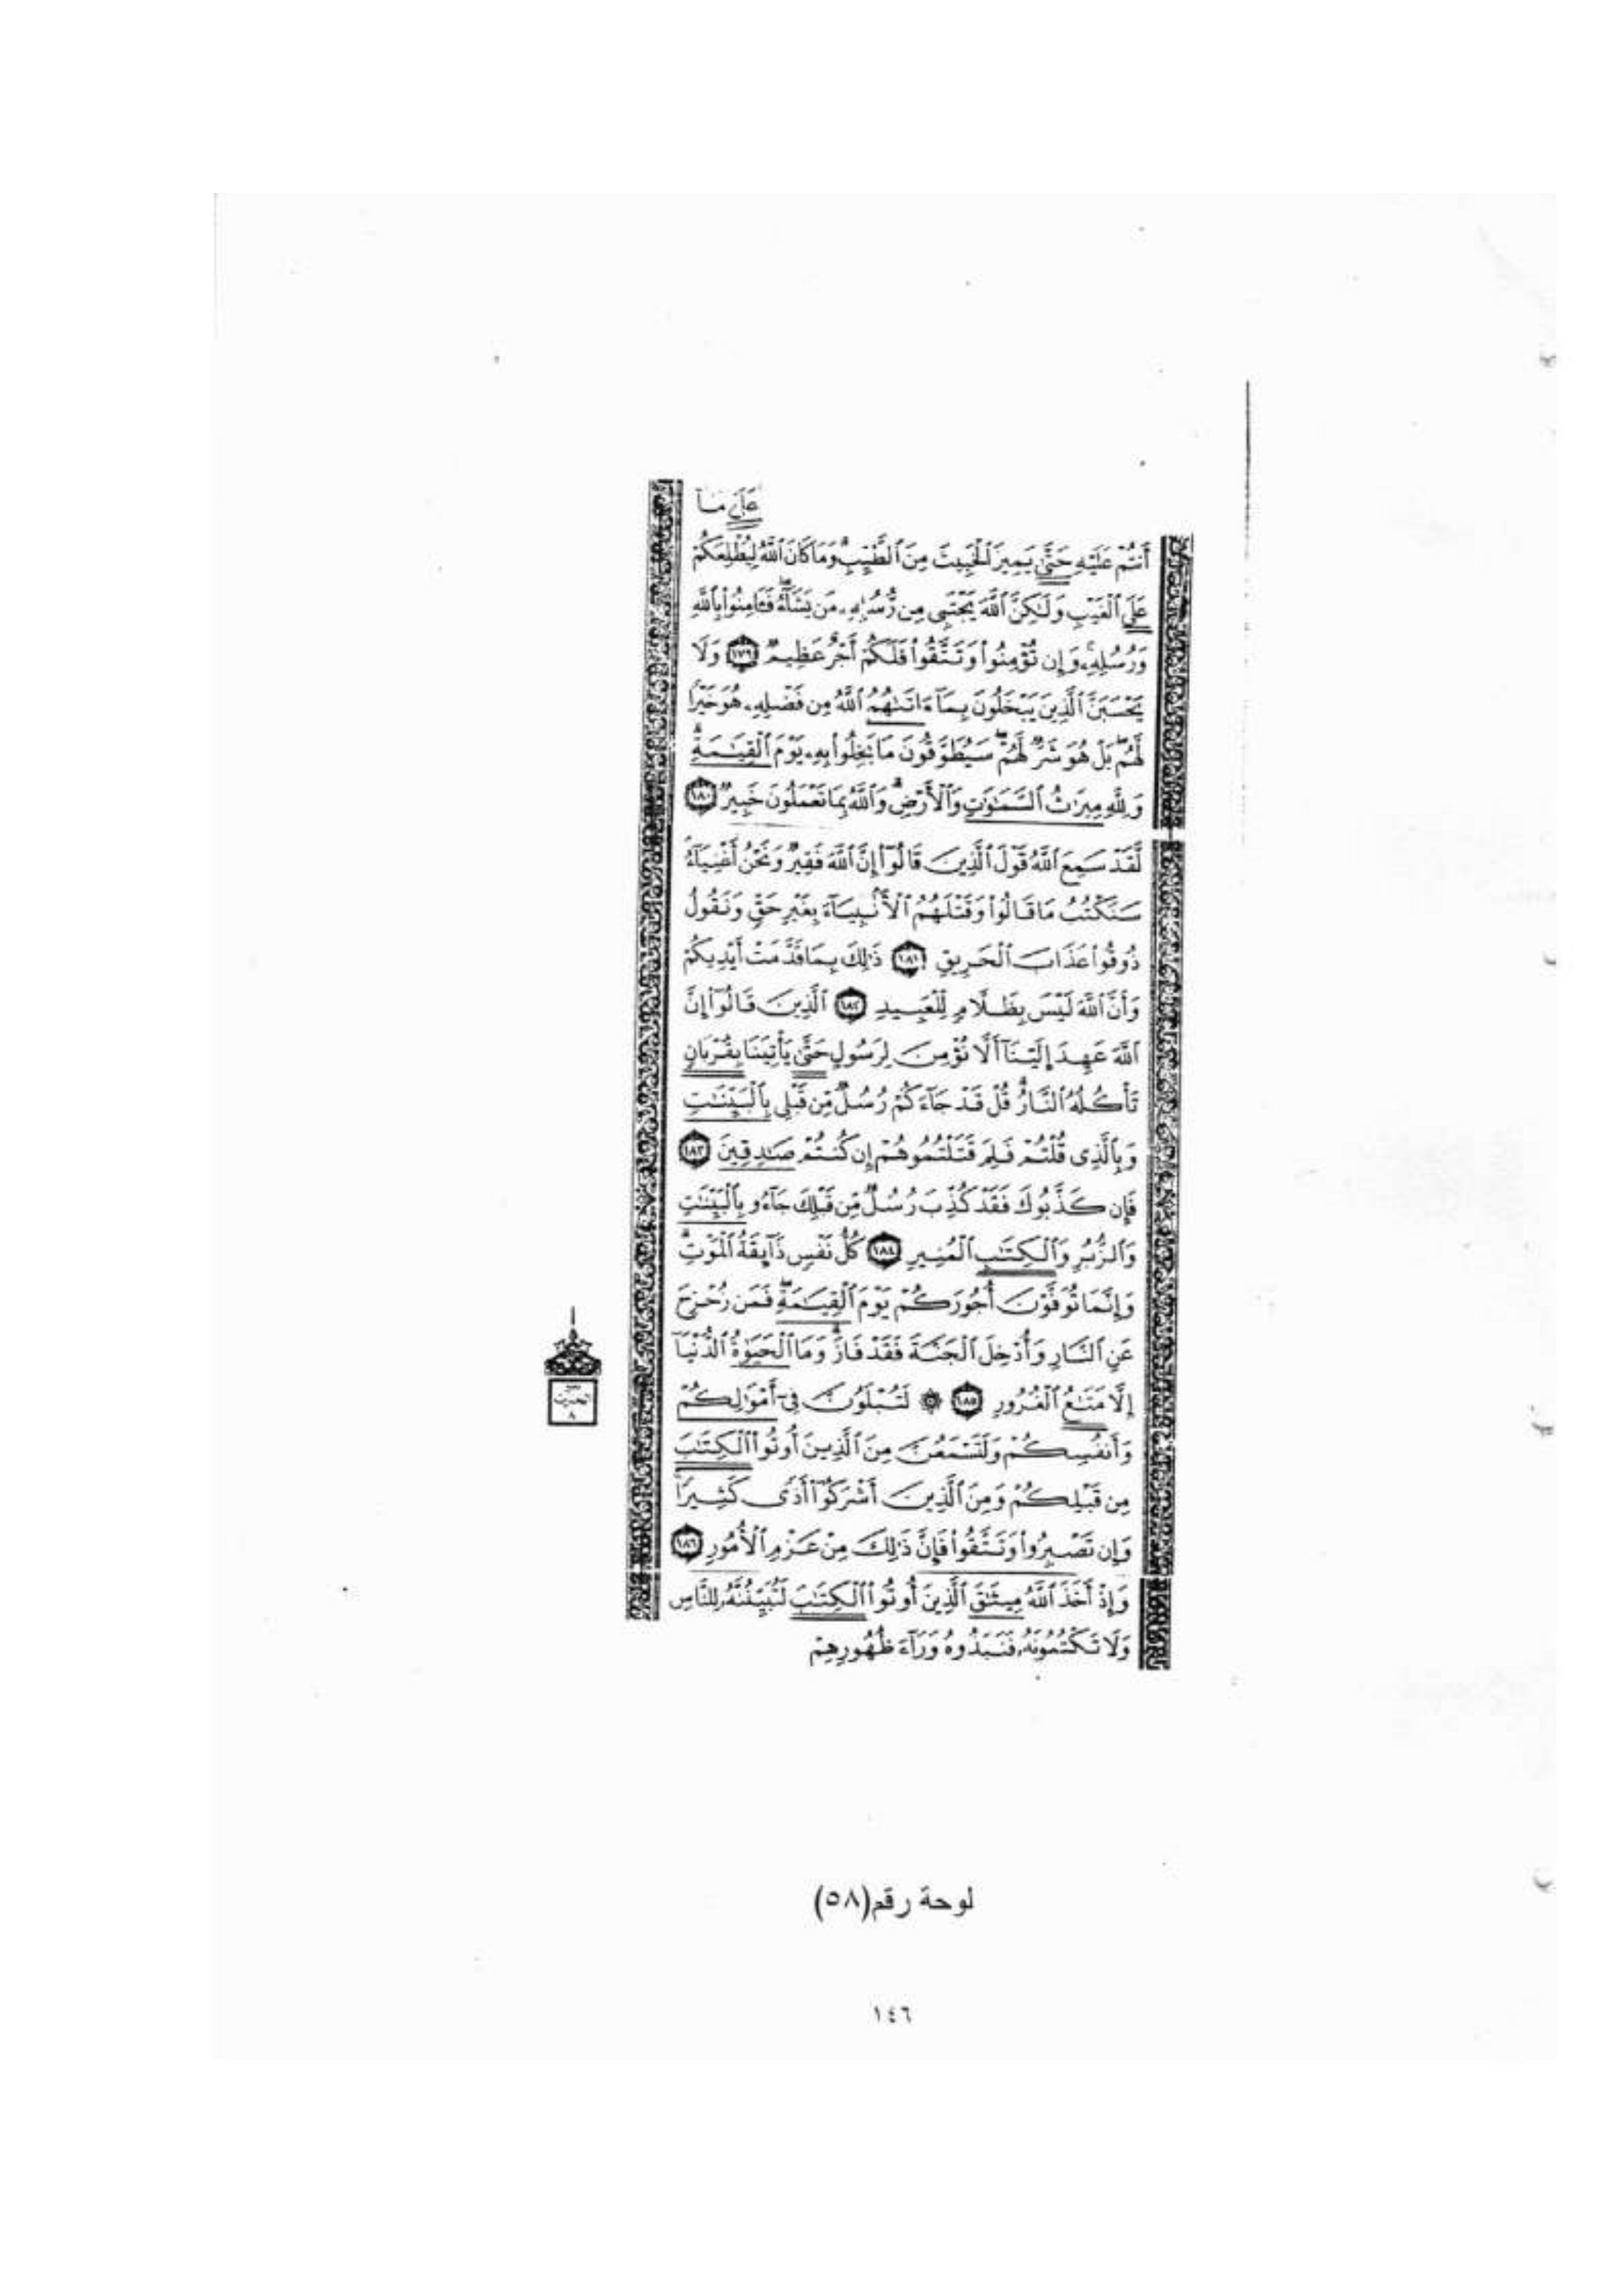 عَلَىٰ مَآ
أَنتُمْ عَلَيْهِ حَتَّىٰ يَمِيزَ ٱلْخَبِيثَ مِنَ ٱلطَّيِّبِ ۗ وَمَا كَانَ ٱللَّهُ لِيُطْلِعَكُمْ
عَلَى ٱلْغَيْبِ وَلَٰكِنَّ ٱللَّهَ يَجْتَبِى مِن رُّسُلِهِۦ مَن يَشَآءُ ۖ فَـَٔامِنُوا۟ بِٱللَّهِ
وَرُسُلِهِۦ ۚ وَإِن تُؤْمِنُوا۟ وَتَتَّقُوا۟ فَلَكُمْ أَجْرٌ عَظِيمٌ ١٧٩ وَلَا
يَحْسَبَنَّ ٱلَّذِينَ يَبْخَلُونَ بِمَآ ءَاتَىٰهُمُ ٱللَّهُ مِن فَضْلِهِۦ هُوَ خَيْرًا
لَّهُم ۖ بَلْ هُوَ شَرٌّ لَّهُمْ ۖ سَيُطَوَّقُونَ مَا بَخِلُوا۟ بِهِۦ يَوْمَ ٱلْقِيَٰمَةِ ۗ
وَلِلَّهِ مِيرَٰثُ ٱلسَّمَٰوَٰتِ وَٱلْأَرْضِ ۗ وَٱللَّهُ بِمَا تَعْمَلُونَ خَبِيرٌ ١٨٠
لَّقَدْ سَمِعَ ٱللَّهُ قَوْلَ ٱلَّذِينَ قَالُوٓا۟ إِنَّ ٱللَّهَ فَقِيرٌ وَنَحْنُ أَغْنِيَآءُ
سَنَكْتُبُ مَا قَالُوا۟ وَقَتْلَهُمُ ٱلْأَنۢبِيَآءَ بِغَيْرِ حَقٍّ وَنَقُولُ
ذُوقُوا۟ عَذَابَ ٱلْحَرِيقِ ١٨١ ذَٰلِكَ بِمَا قَدَّمَتْ أَيْدِيكُمْ
وَأَنَّ ٱللَّهَ لَيْسَ بِظَلَّامٍ لِّلْعَبِيدِ ١٨٢ ٱلَّذِينَ قَالُوٓا۟ إِنَّ
ٱللَّهَ عَهِدَ إِلَيْنَآ أَلَّا نُؤْمِنَ لِرَسُولٍ حَتَّىٰ يَأْتِيَنَا بِقُرْبَانٍ
تَأْكُلُهُ ٱلنَّارُ ۗ قُلْ قَدْ جَآءَكُمْ رُسُلٌ مِّن قَبْلِى بِٱلْبَيِّنَٰتِ
وَبِٱلَّذِى قُلْتُمْ فَلِمَ قَتَلْتُمُوهُمْ إِن كُنتُمْ صَٰدِقِينَ ١٨٣
فَإِن كَذَّبُوكَ فَقَدْ كُذِّبَ رُسُلٌ مِّن قَبْلِكَ جَآءُو بِٱلْبَيِّنَٰتِ
وَٱلزُّبُرِ وَٱلْكِتَٰبِ ٱلْمُنِيرِ ١٨٤ كُلُّ نَفْسٍ ذَآئِقَةُ ٱلْمَوْتِ ۗ
وَإِنَّمَا تُوَفَّوْنَ أُجُورَكُمْ يَوْمَ ٱلْقِيَٰمَةِ ۖ فَمَن زُحْزِحَ
عَنِ ٱلنَّارِ وَأُدْخِلَ ٱلْجَنَّةَ فَقَدْ فَازَ ۗ وَمَا ٱلْحَيَوٰةُ ٱلدُّنْيَآ
إِلَّا مَتَٰعُ ٱلْغُرُورِ ١٨٥ ۞ لَتُبْلَوُنَّ فِىٓ أَمْوَٰلِكُمْ
وَأَنفُسِكُمْ وَلَتَسْمَعُنَّ مِنَ ٱلَّذِينَ أُوتُوا۟ ٱلْكِتَٰبَ
مِن قَبْلِكُمْ وَمِنَ ٱلَّذِينَ أَشْرَكُوٓا۟ أَذًى كَثِيرًا ۚ
وَإِن تَصْبِرُوا۟ وَتَتَّقُوا۟ فَإِنَّ ذَٰلِكَ مِنْ عَزْمِ ٱلْأُمُورِ ١٨٦
وَإِذْ أَخَذَ ٱللَّهُ مِيثَٰقَ ٱلَّذِينَ أُوتُوا۟ ٱلْكِتَٰبَ لَتُبَيِّنُنَّهُۥ لِلنَّاسِ
وَلَا تَكْتُمُونَهُۥ فَنَبَذُوهُ وَرَآءَ ظُهُورِهِمْ
لوحة رقم(٥٨)
١٤٦